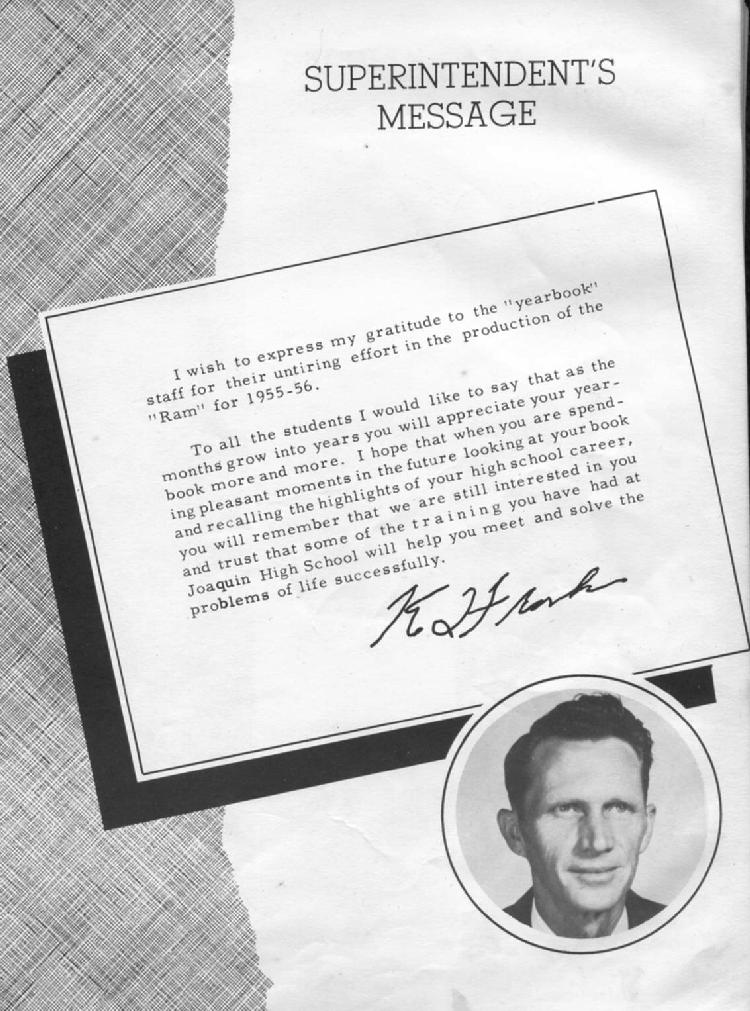 SUPERINTENDENT'S
MESSAGE
I wish to express my gratitude to the "yearbook"
staff for their untiring effort in the production of the
"Ram" for 1955-56.
To all the students I would like to say that as the
months grow into years you will appreciate your year-
book more and more. I hope that when you are spend-
ing pleasant moments in the future looking at your book
and recalling the highlights of your high school career,
you will remember that we are still interested in you
and trust that some of the training you have had at
Joaquin High School will help you meet and solve the
problems of life successfully.